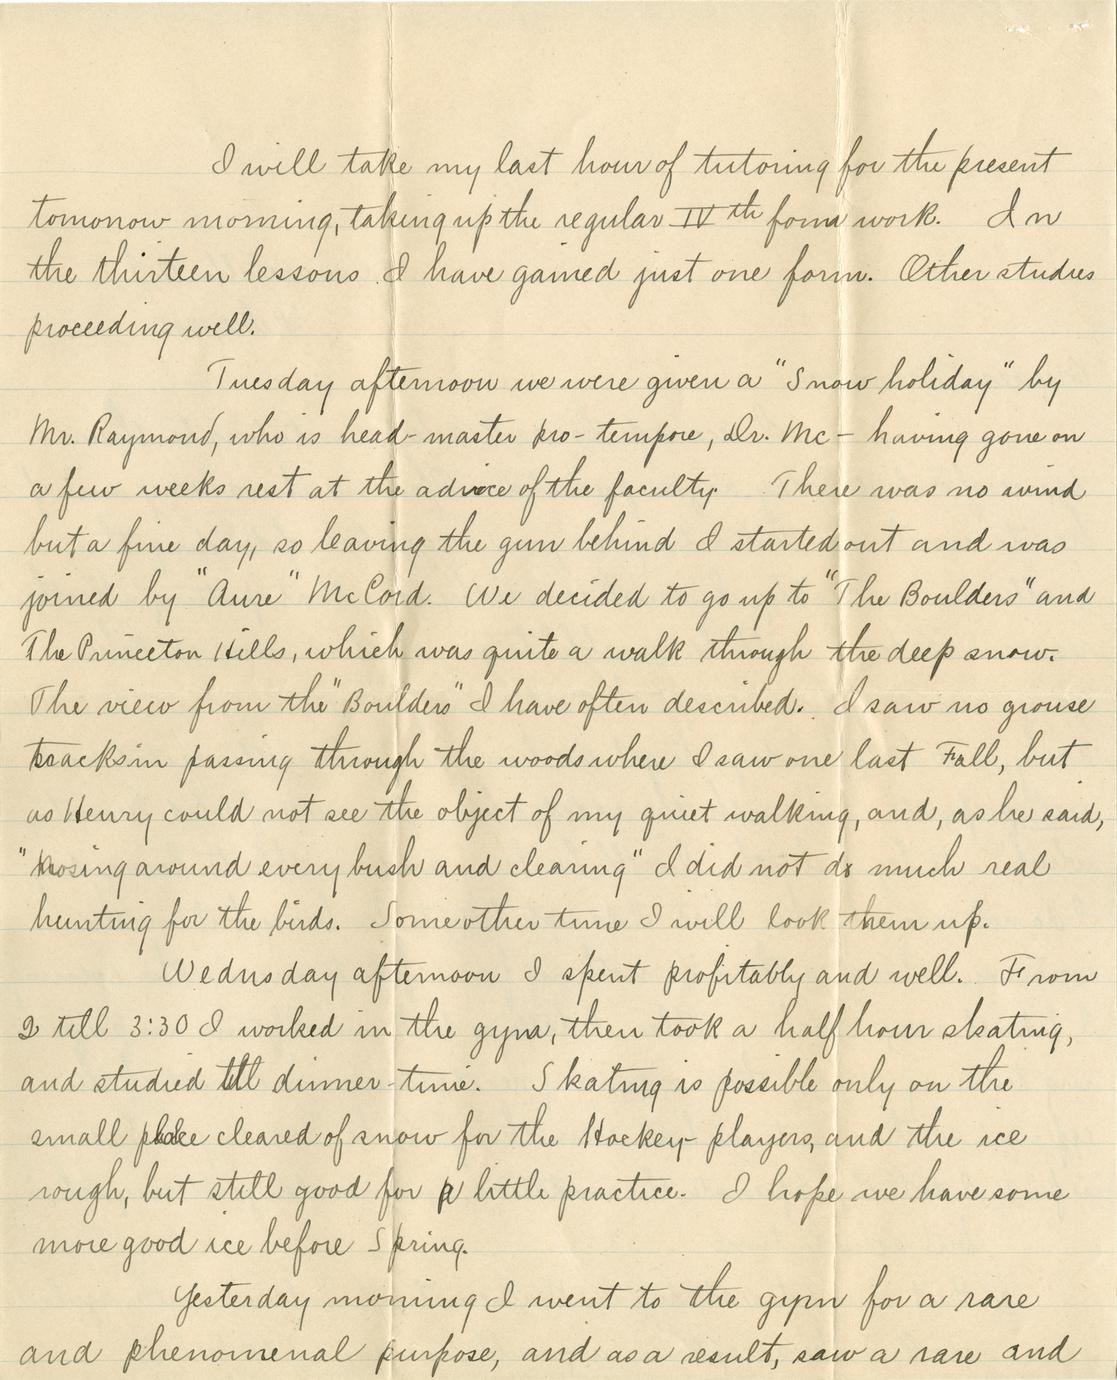 I will take my last hour of tutoring for the present
tomorrow morning, taking up the regular IVth form work. In
the thirteen lessons I have gained just one form. Other studies
proceeding well.
Tuesday afternoon we were given a "Snow holiday" by
Mr. Raymond, who is head-master pro-tempore, Dr. Mc- having gone on
a few weeks rest at the advice of the faculty. There was no wind
but a fine day, so leaving the gun behind I started out and was
joined by "Aure" McCord. We decided to go up to "The Boulders" and
The Princeton Hills, which was quite a walk through the deep snow.
The view from the "Boulders" I have often described. I saw no grouse
tracks in passing through the woods where I saw one last Fall, but
as Henry could not see the object of my quiet walking, and, as he said,
"nosing around every bush and clearing" I did not do much real
hunting for the birds. Some other time I will look them up.
Wednsday afternoon I spent profitably and well. From
2 till 3:30 I worked in the gym, then took a half hour skating,
and studied till dinner-time. Skating is possible only on the
small place cleared of snow for the Hockey players, and the ice
rough, but still good for a little practice. I hope we have some
more good ice before Spring.
Yesterday morning I went to the gym for a rare
and phenomenal purpose, and as a result, saw a rare and